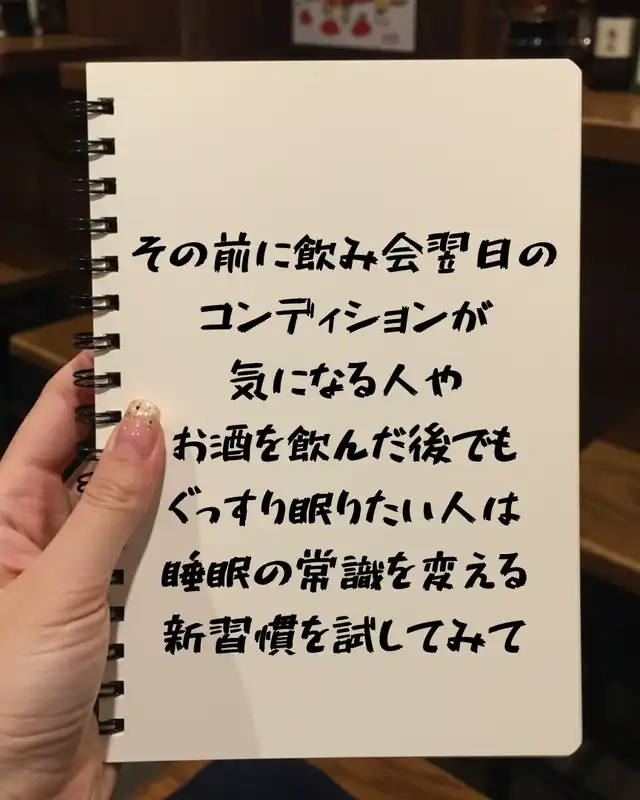 その前に飲み会翌日の
コンディションが
気になる人や
お酒を飲んだ後でも
ぐっすり眠りたい人は
睡眠の常識を変える
新習慣を試してみて